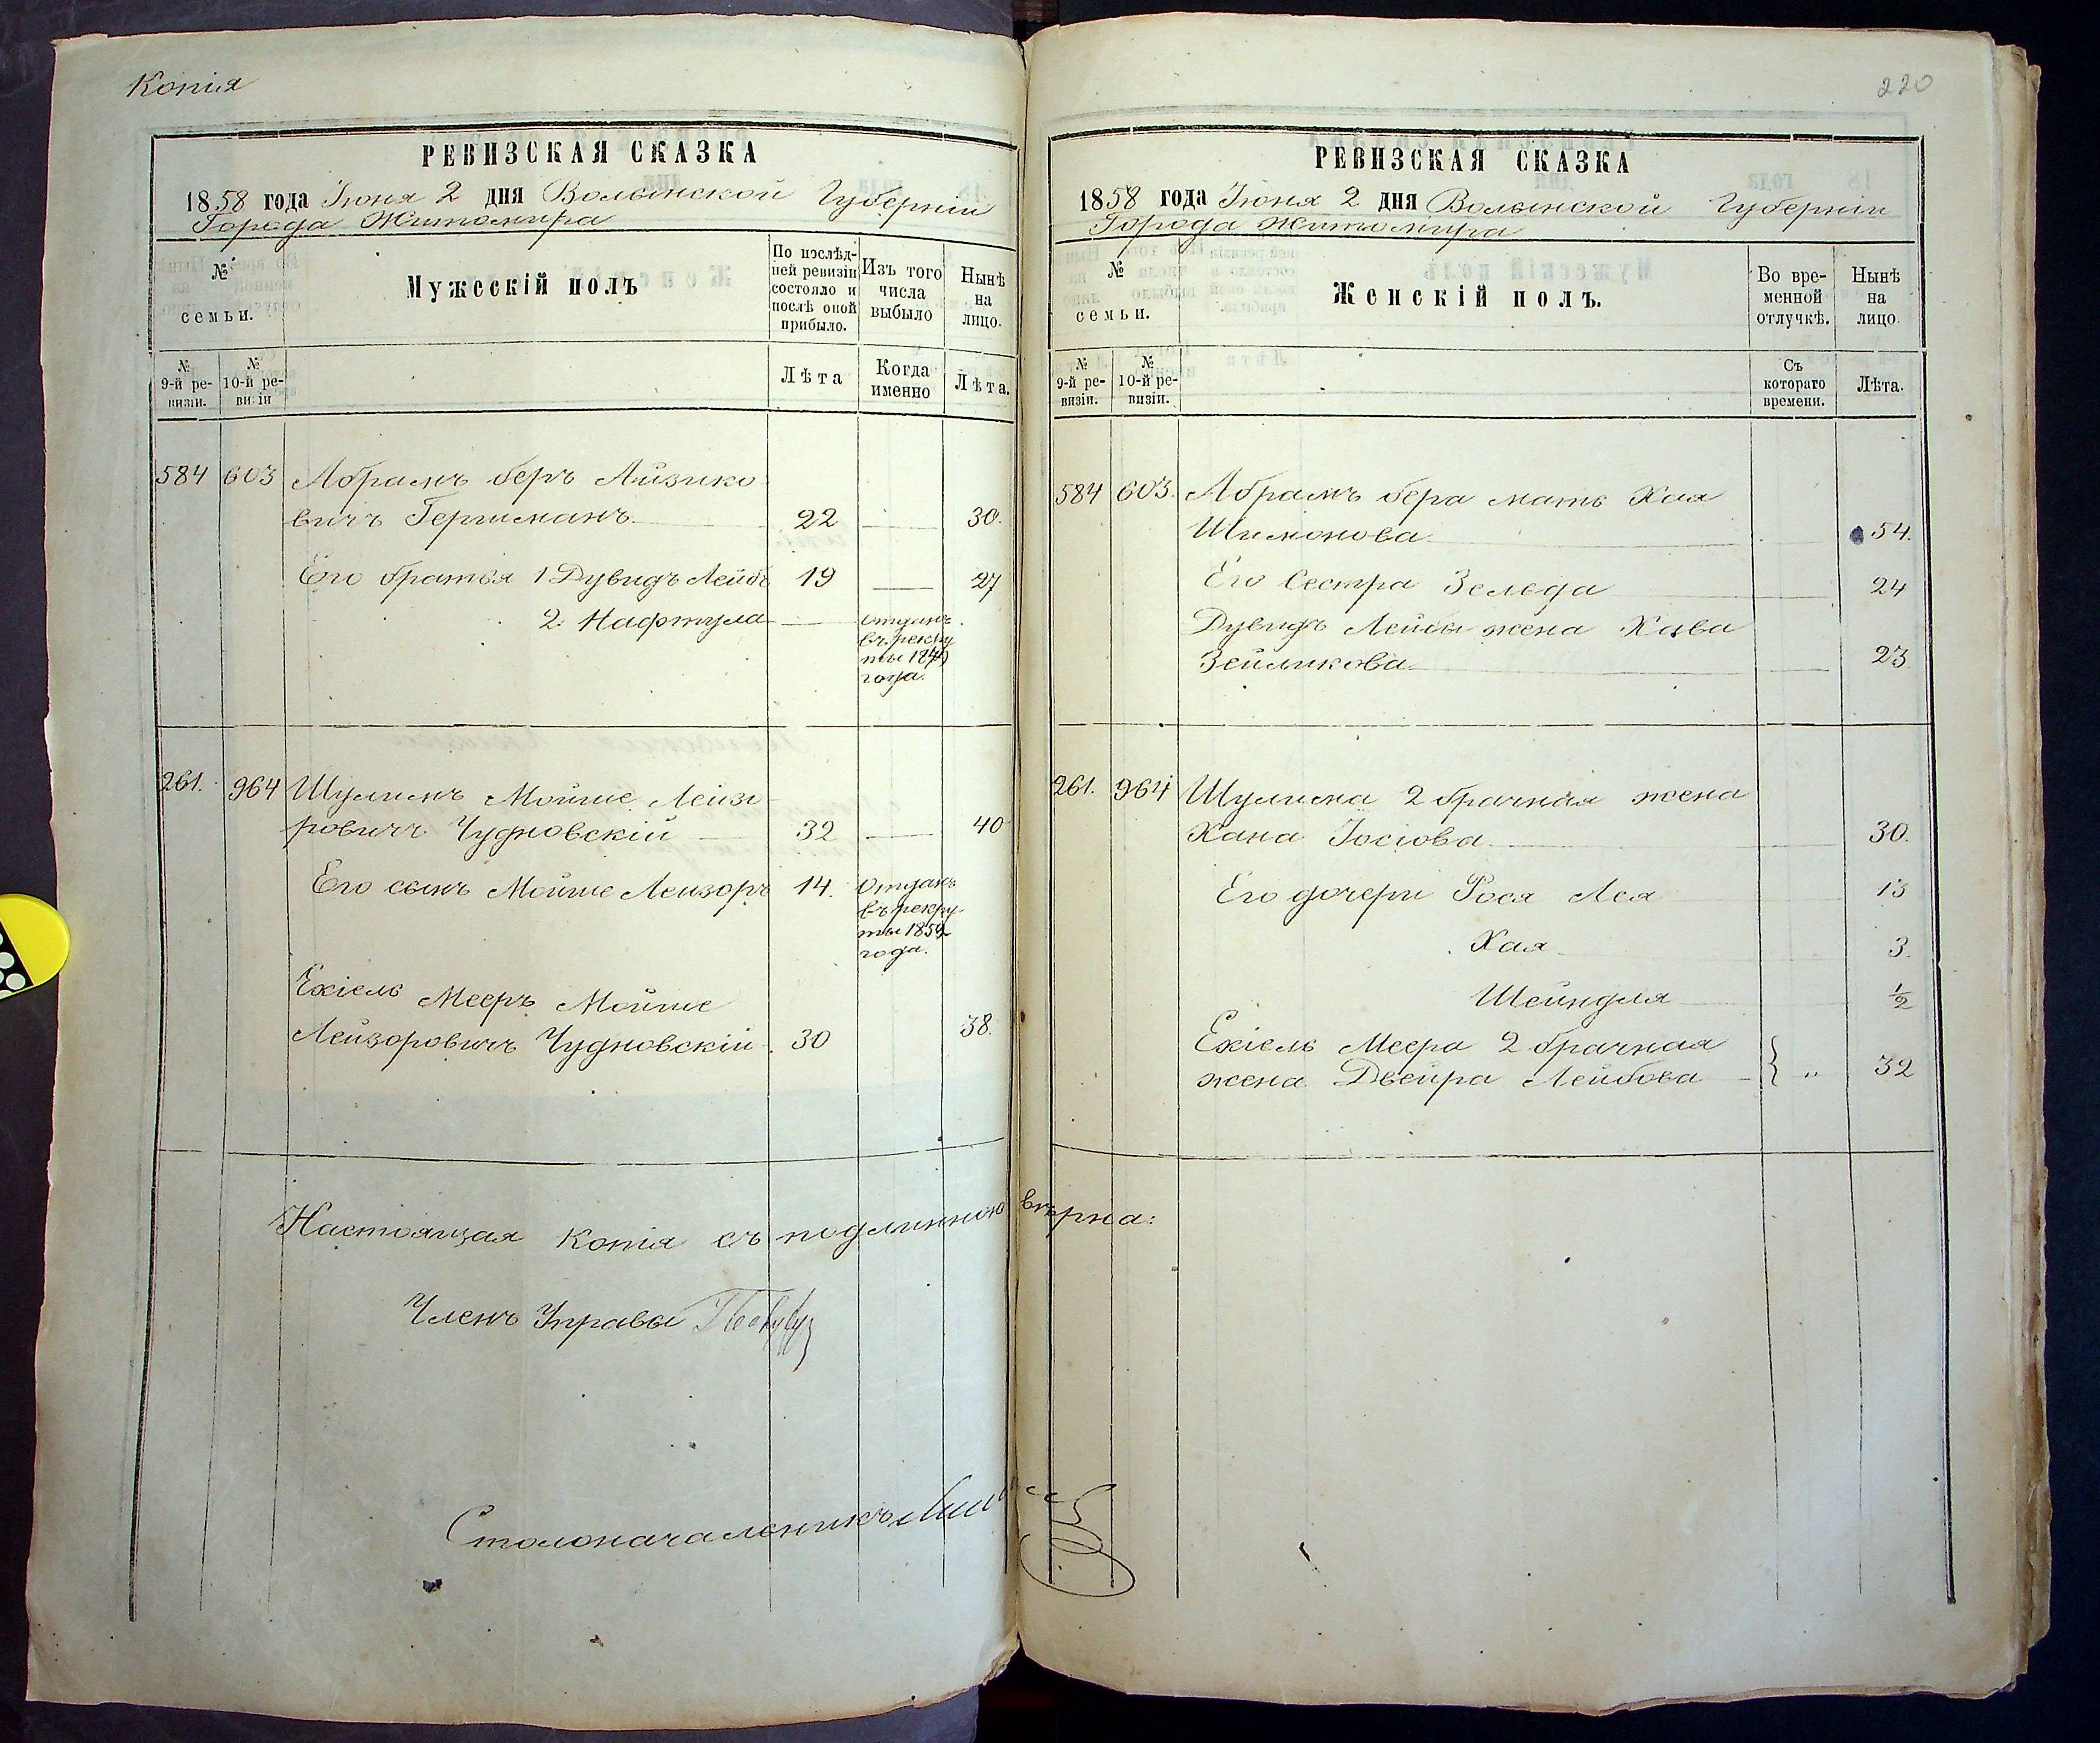 Копія
РЕВИЗСКАЯ СКАЗКА
1858 года Іюня 2 дня Волынской Губерніи
Города Житомира
№ семьи.
Мужескій полъ
По послѣдней ревизіи состояло и послѣ оной прибыло.
Изъ того числа выбыло
Нынѣ на лицо.
№ 9-й ревизіи.
№ 10-й ревизіи
Лѣта
Когда именно
Лѣта.
584 603 Абрамъ беръ Айзико
вичъ Гершманъ 22 — 30.
Его братья 1 Дувидъ Лейбъ 19 — 27
2. Нафтула — отданъ
въ рекру
ты 184
года.
261. 964 Шулимъ Мойше Лейзе
ровичъ Чудновскій 32 — 40
Его сынъ Мойше Лейзоръ 14. Отданъ
въ рекру
ты 1859
года.
Ехіель Мееръ Мойше
Лейзоровичъ Чудновскій 30 38.
Настоящая копія съ подлинною вѣрна:
Членъ Управы
Столоначальникъ
220
РЕВИЗСКАЯ СКАЗКА
1858 года Іюня 2 дня Волынской Губерніи
Города Житомира
№ семьи.
Женскій полъ.
Во временной отлучкѣ.
Нынѣ на лицо.
№ 9-й ревизіи.
№ 10-й ревизіи.
Съ котораго времени.
Лѣта.
584 603. Абрамъ бера мать Хая
Шимонова 54.
Его Сестра Зельда 24
Дувидъ Лейбы жена Хава
Зейликова 23
261. 964 Шулима 2 брачная жена
Хана Іосіова 30.
Его дочери Рося Лея 13
Хая 3.
Шейндля ½
Ехіель Меера 2 брачная
жена Двейра Лейбова — } „ 32